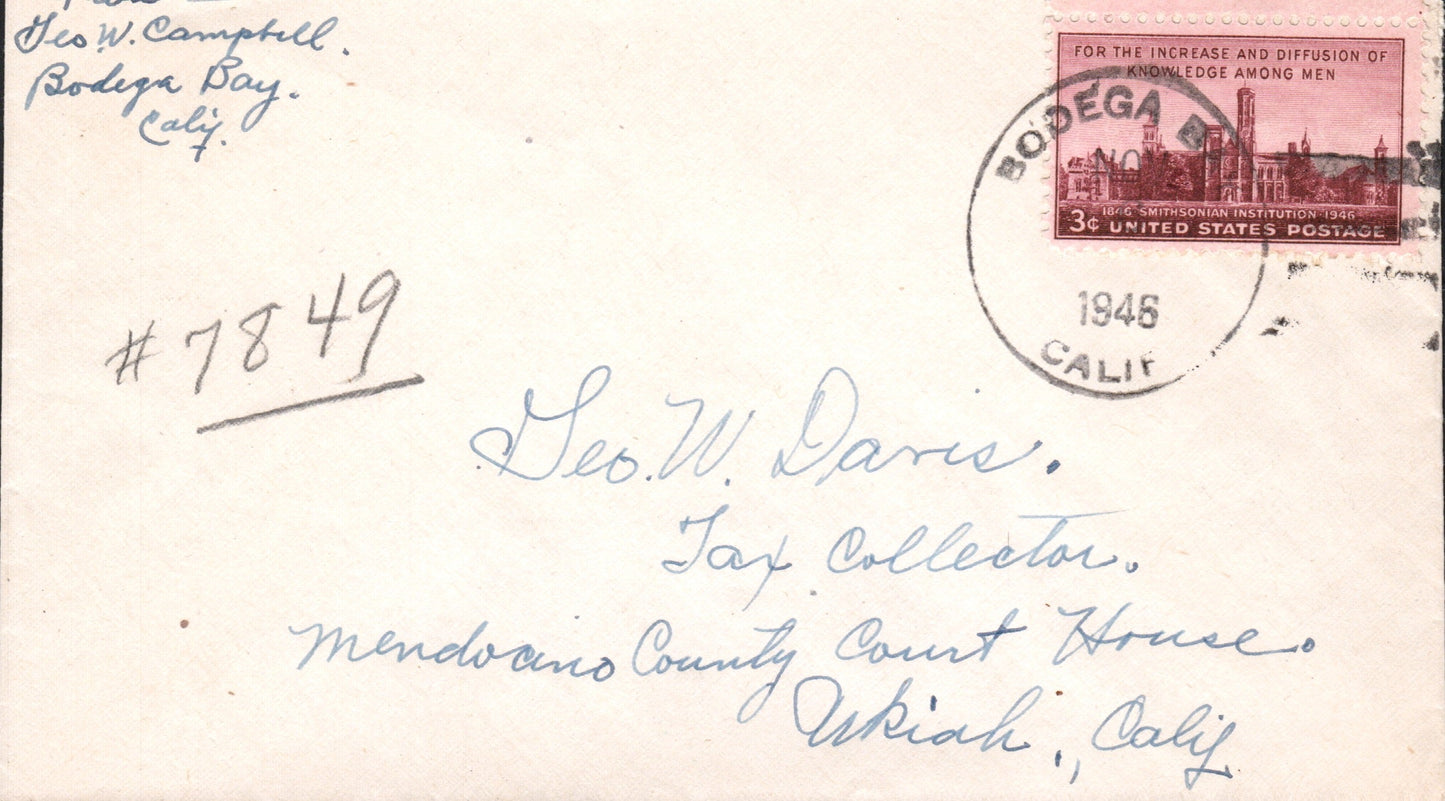 From
Geo. W. Campbell.
Bodega Bay.
Calif.
FOR THE INCREASE AND DIFFUSION OF
KNOWLEDGE AMONG MEN
1846 SMITHSONIAN INSTITUTION 1946
3¢ UNITED STATES POSTAGE
BODEGA
NOV
1946
CALIF
# 7849
Geo. W. Davis.
Tax Collector.
Mendocino County Court House.
Ukiah., Calif